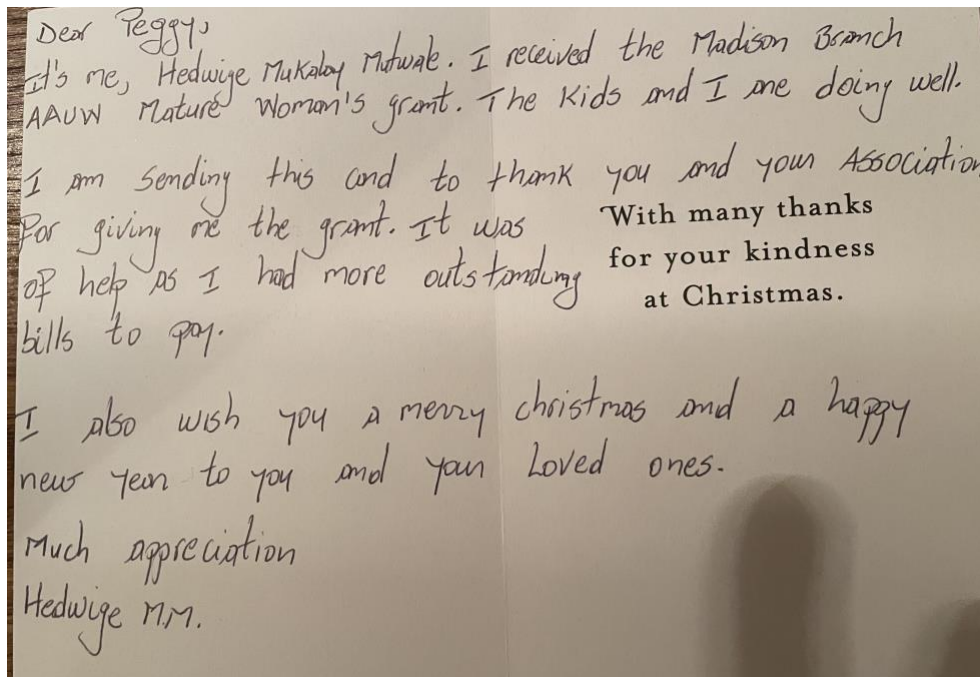 Dear Peggy,
It's me, Hedwige Mukalay Mutwale. I received the Madison Branch
AAUW Mature Woman's grant. The Kids and I are doing well.
I am sending this card to thank you and your Association
For giving me the grant. It was
of help as I had more outstanding
bills to pay.
With many thanks
for your kindness
at Christmas.
I also wish you a merry christmas and a happy
new year to you and your Loved ones.
Much appreciation
Hedwige M.M.